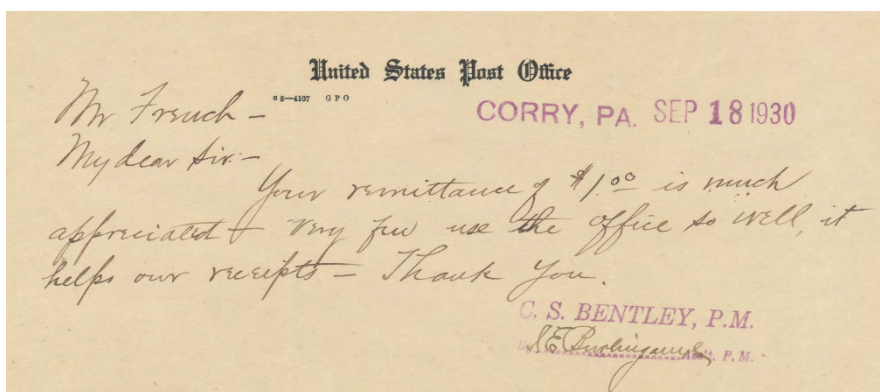 United States Post Office
o 5—4107 GPO
CORRY, PA. SEP 18 1930
Mr French –
My dear Sir:–
Your remittance of $1.00 is much
appreciated – very few use the office so well, it
helps our receipts – Thank You.
C. S. BENTLEY, P.M.
By Burlingame Ass't. P. M.